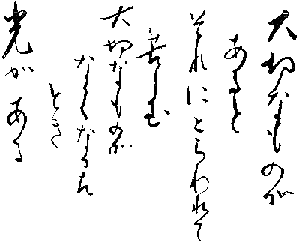 大切なものが
あると
それにとらわれて
苦しむ
大切なものが
なくなった
とき
光がある